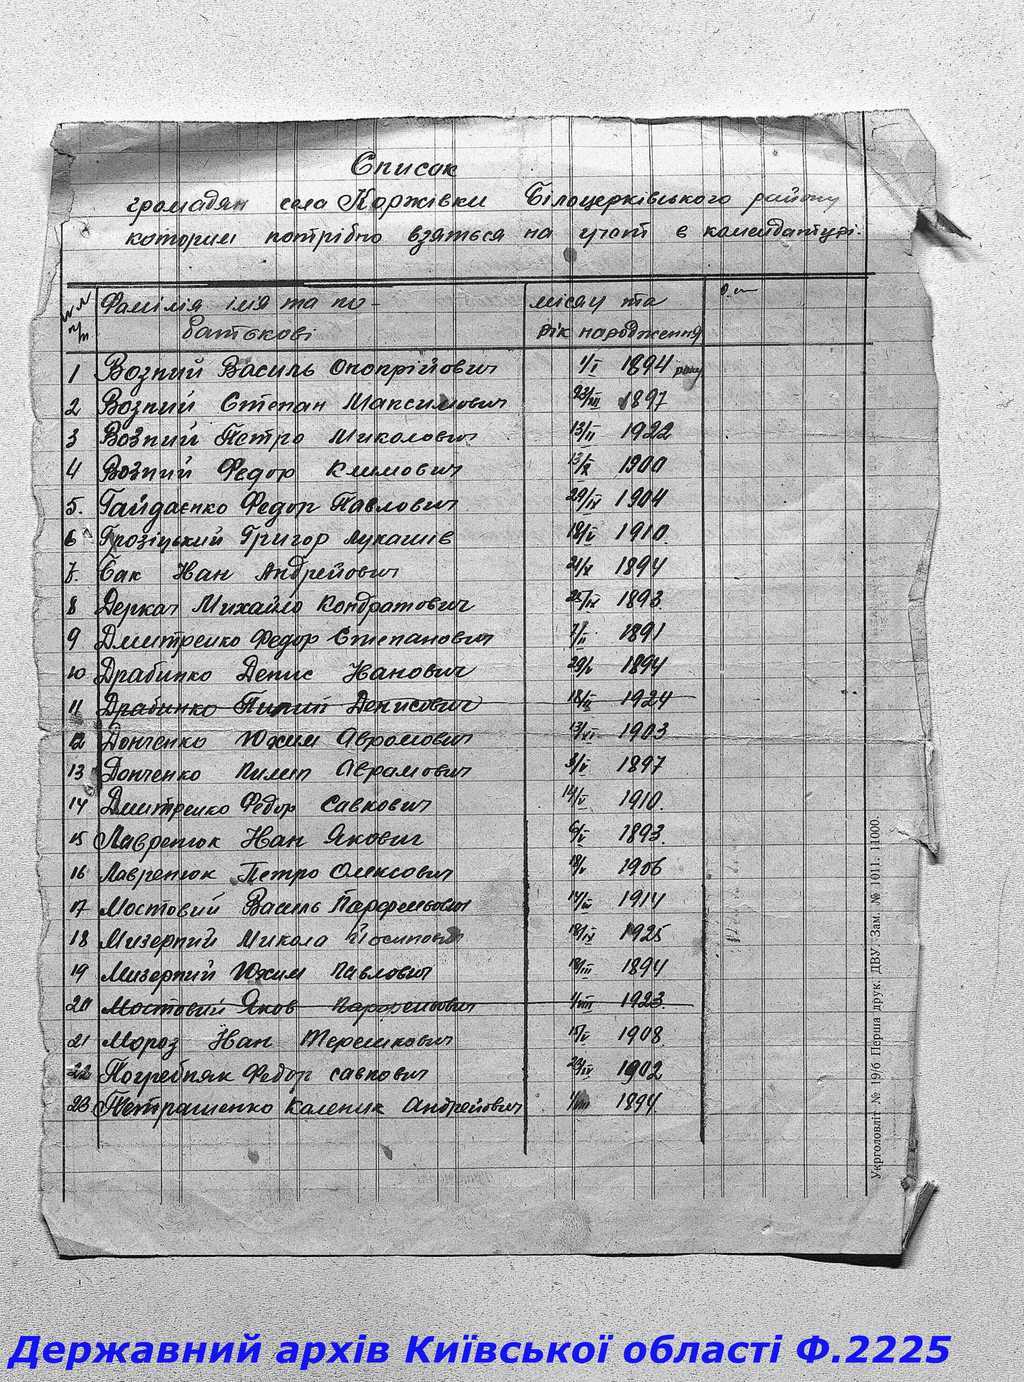 Список
громадян села Коржівки Білоцерківського району
которим потрібно взяться на учот в комендатурі.
№№ п/п Фамілія імя та по-батькові місяц та рік народження
1 Возний Василь Онопрійович 1/I 1894 року
2 Возний Степан Максимович 1897
3 Возний Петро Миколович 13/II 1922
4 Возний Федор Климович 13/X 1900
5. Гайдаєнко Федор Павлович 29/IV 1904
6 Грозіцький Григор Лукашів 18/V 1910.
7. Гак Иван Андрейович 21/X 1894
8 Деркач Михайло Кондратович 25/IX 1893.
9 Дмитренко Федор Степанович 7/II 1891
10 Драбинко Денис Иванович 29/V 1894
11 Драбинко Пилип Денисович 1924
12 Донченко Юхим Авромович 13/VI 1903
13 Донченко Пилип Аврамович 3/V 1897
14 Дмитренко Федор Савкович 14/V 1910.
15 Лавренюк Иван Якович 6/V 1893.
16 Лавренюк Петро Олексович 18/V 1906
17 Мостовий Василь Парфемович 1914
18 Мизерний Микола Йосипович 18/IX 1925
19 Мизерний Юхим Павлович 18/III 1894
20 Мостовий Яков Парфемович 1/VIII 1923.
21 Мороз Иван Терешкович 15/V 1908.
22 Погребняк Федор Савкович 1902
23 Петрашенко Каленик Андрейович 1894.
Укрголовліт № 19/б Перша друк. ДВУ. Зам. № 1011. 11000.
Державний архів Київської області Ф.2225